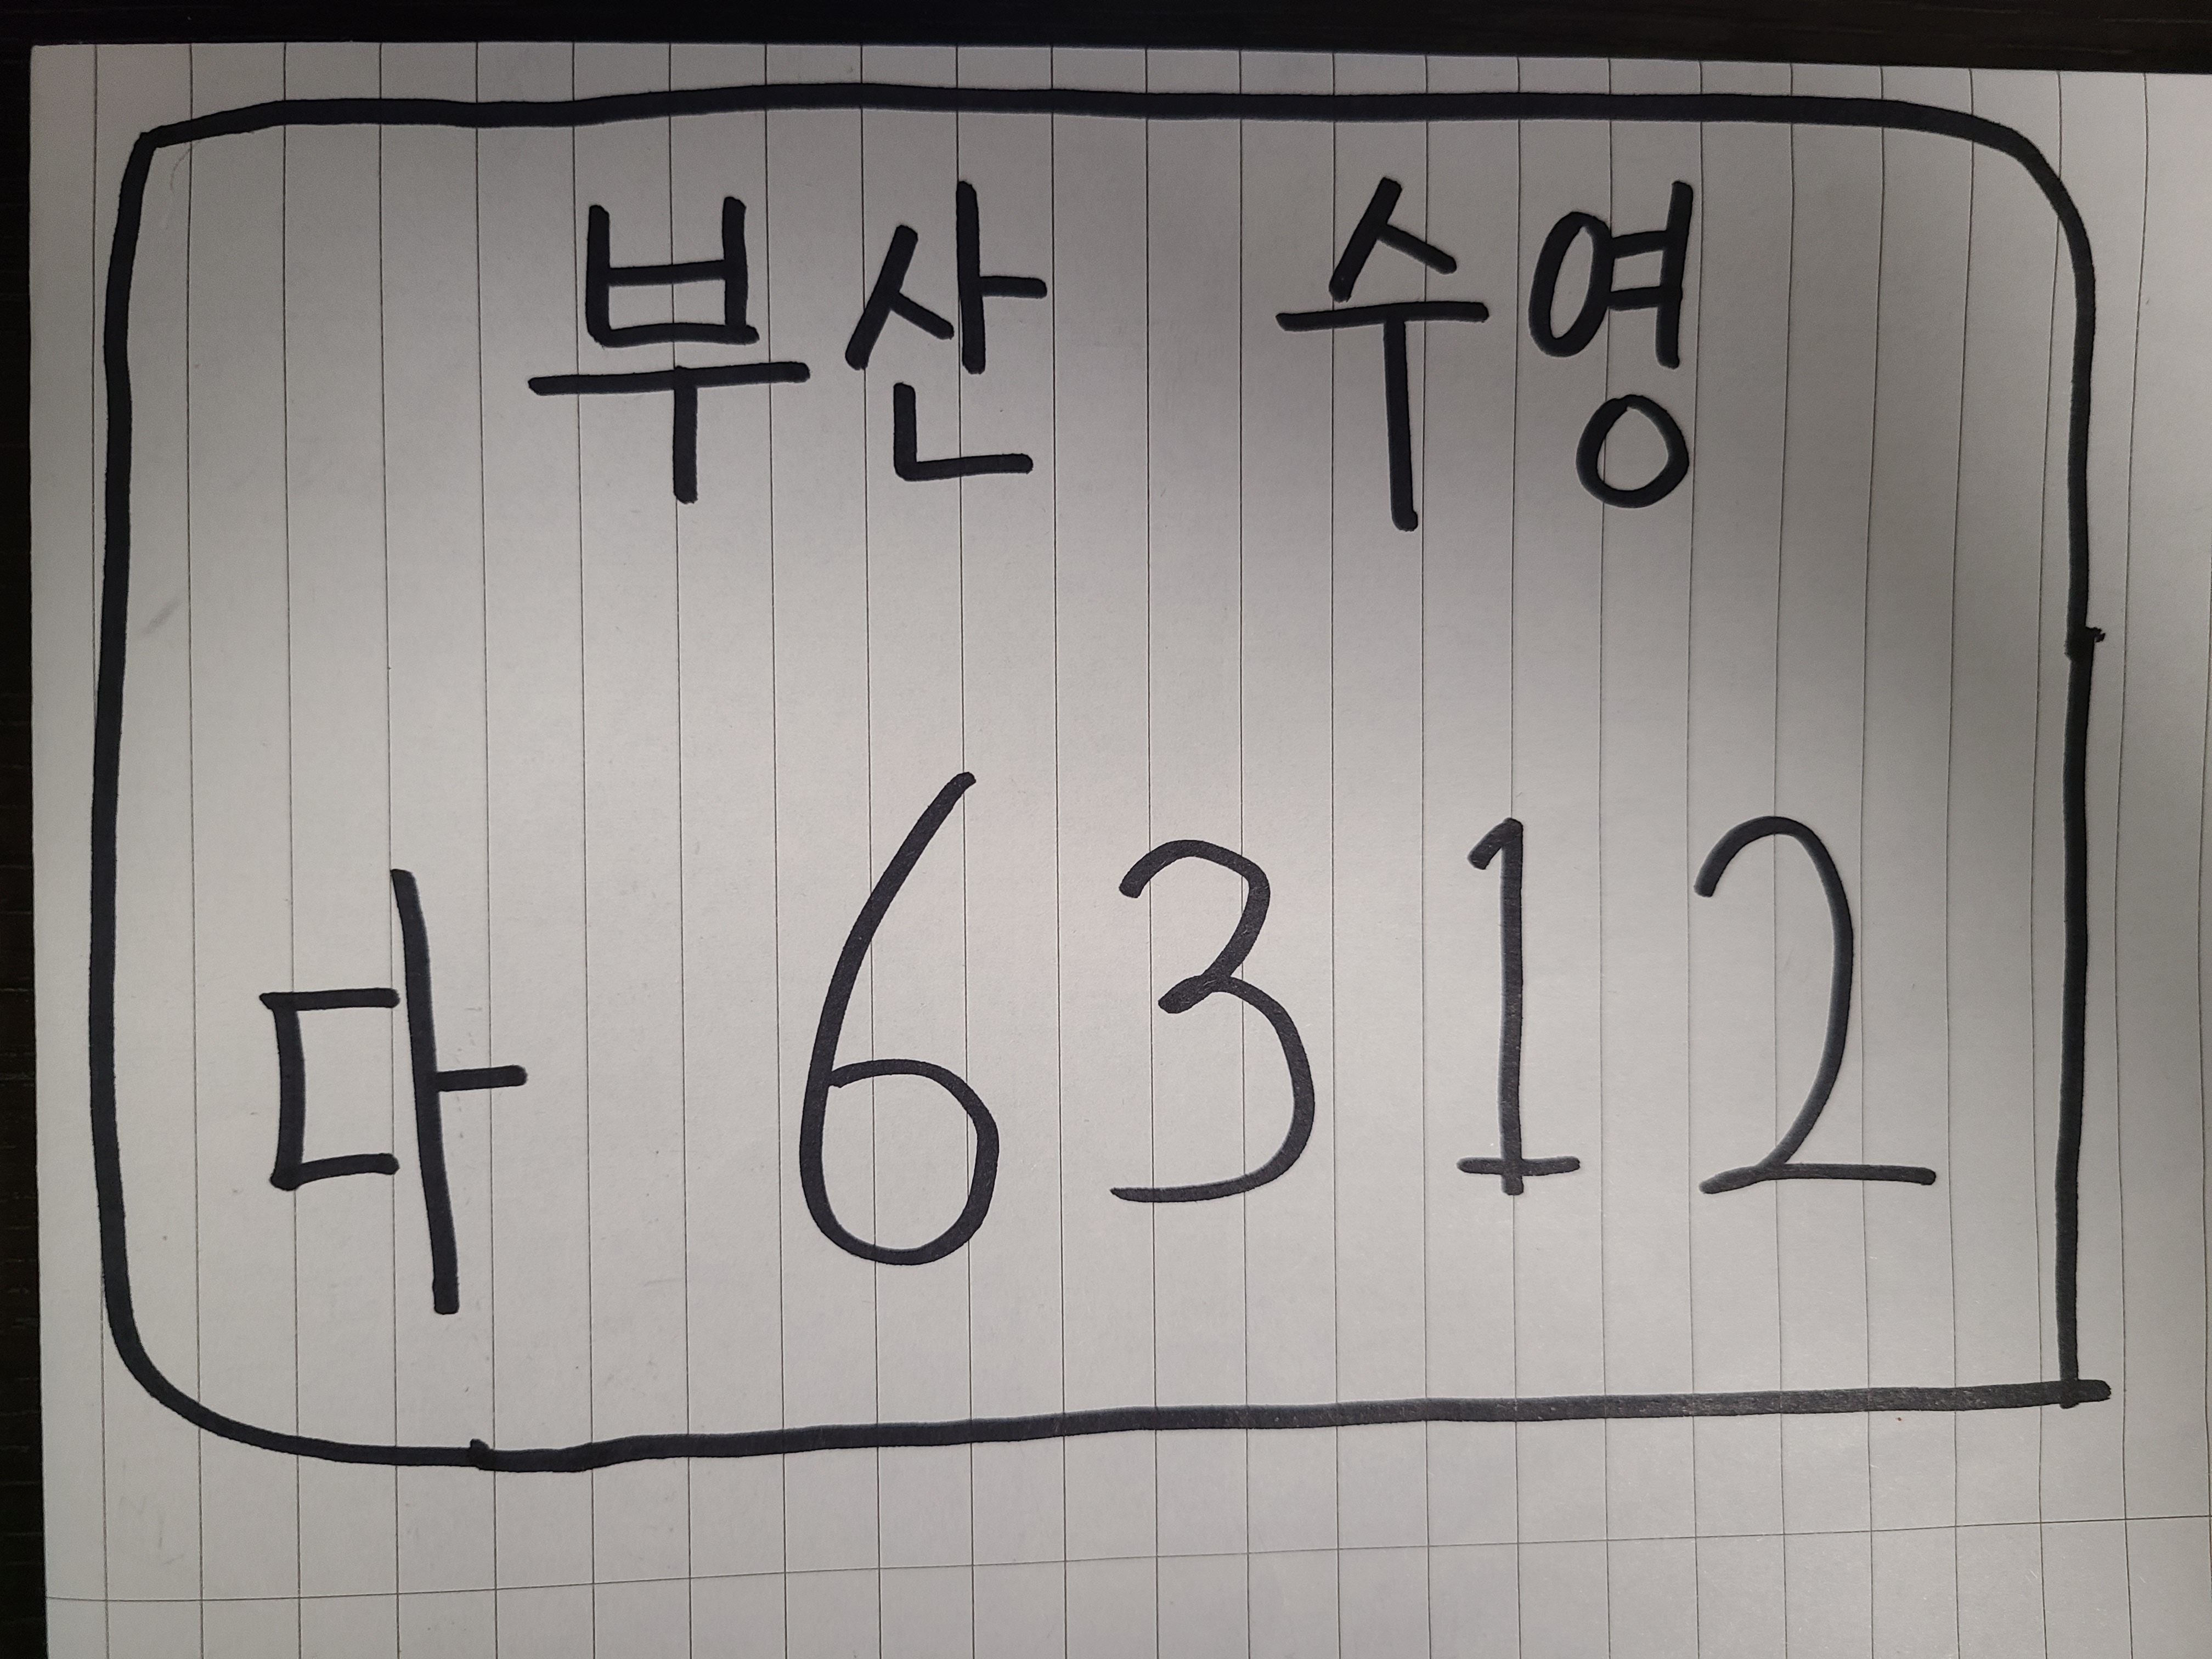 부산 수영
다 6312